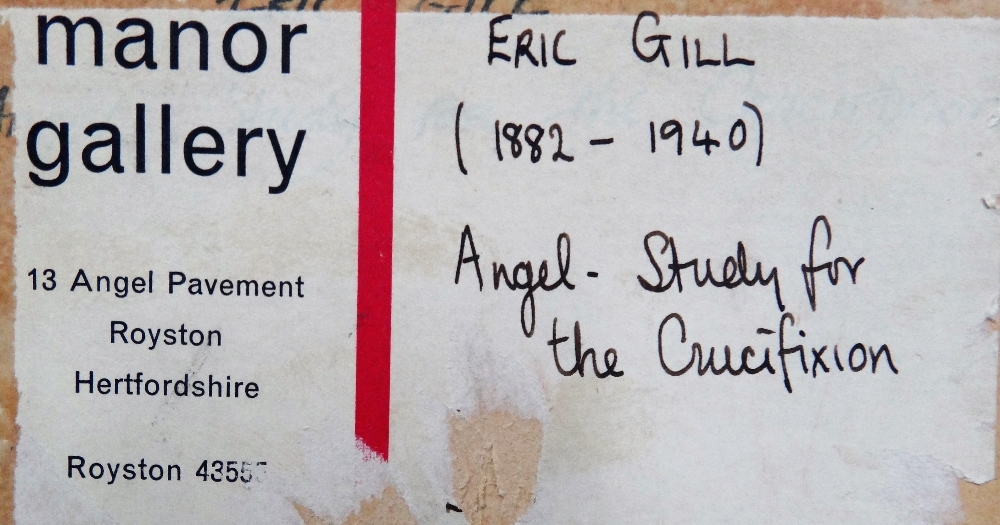 manor
gallery
13 Angel Pavement
Royston
Hertfordshire
Royston
ERIC GILL
(1882 - 1940)
Angel - Study for
the Crucifixion